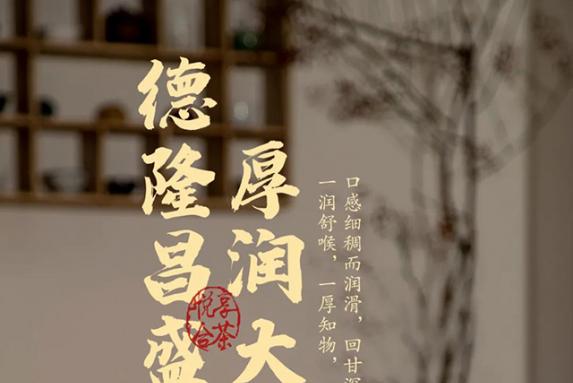 口感细稠而润滑，回甘深
一润舒喉，一厚知物，
厚润大
德隆昌盛
享茶
悦合